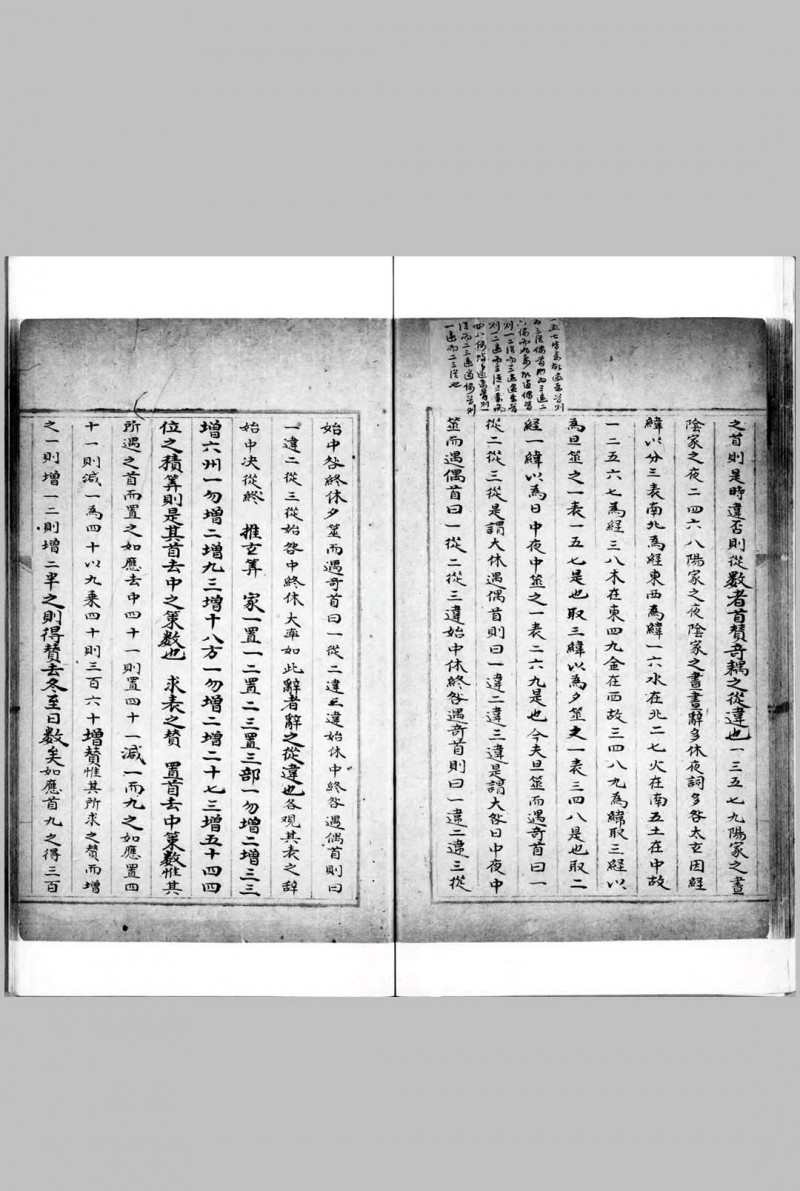 之首則是時違否則從數者首贊奇耦之從違也一三五七九陽家之晝
陰家之夜二四六八陽家之夜陰家之晝晝辭多休夜詞多咎太玄因經
緯以分三表南北為經東西為緯一六水在北二七火在南五土在中故
一二五六七為經三八木在東四九金在西故三四八九為緯取三經以
為旦筮之一表一五七是也取三緯以為夕筮之一表三四八是也取二
經一緯以為日中夜中筮之一表二六九是也今夫旦筮而遇奇首曰一
從二從三從是謂大休遇偶首則曰一違二違三違是謂大咎日中夜中
筮而遇偶首曰一從二從三違始中休終咎遇奇首則曰一違二違三從
始中咎終休夕筮而遇奇首曰一從二違三違始休中終咎遇偶首則曰
一違二從三從始咎中終休大率如此辭者辭之從違也各觀其表之辭
始中决從終 推玄筭 家一置一二置二三置三部一勿增二增三三
增六州一勿增二增九三增十八方一勿增二增二十七三增五十四四
位之積筭則是其首去中之策數也 求表之贊 置首去中策數惟其
所遇之首而置之如應去中四十一則置四十一減一而九之如應置四
十一則減一為四十以九乘四十則三百六十增贊惟其所求之贊而增
之一則增一二則增二半之則得贊去冬至日數矣如應首九之得三百